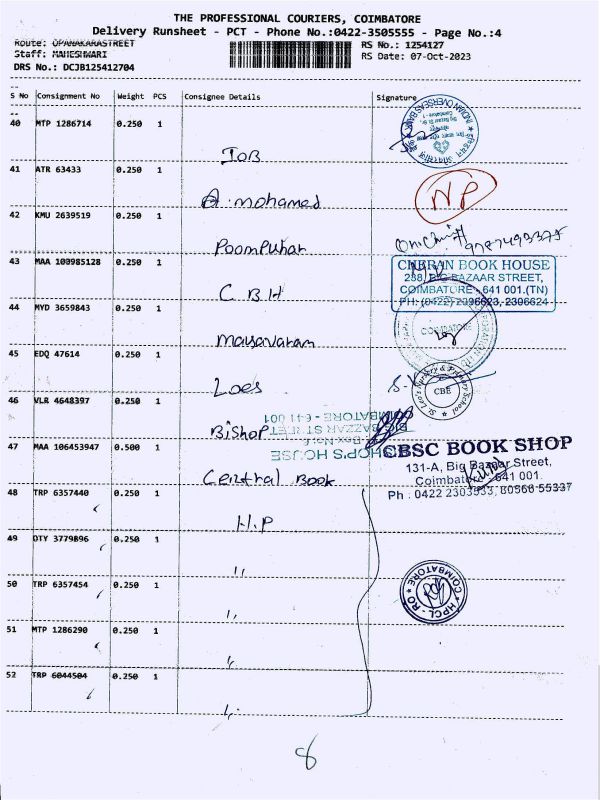 THE PROFESSIONAL COURIERS, COIMBATORE
Delivery Runsheet - PCT - Phone No.:0422-3505555 - Page No.:4
Route: OPANAKARASTREET
RS No.: 1254127
Staff: MAHESHWARI
RS Date: 07-Oct-2023
DRS No.: DCJB125412704
S No Consignment No Weight PCS Consignee Details Signature
40 MTP 1286714 0.250 1
IOB
INDIAN OVERSEAS BANK
41 ATR 63433 0.250 1
A. mohamed
NP
42 KMU 2639519 0.250 1
Poompuhar
43 MAA 100985128 0.250 1
C.B.H
CHERAN BOOK HOUSE
238, BIG BAZAAR STREET,
COIMBATORE - 641 001.(TN)
PH: (0422) 2396623, 2306624
44 MYD 3659843 0.250 1
Mayavaram
COIMBATORE
45 EDQ 47614 0.250 1
Loes
St. Leo's Nursery & Primary School
CBE
46 VLR 4648397 0.250 1
Bishop
BISHOP'S HOUSE
Box No: 6
BIG BAZZAR STREET
COIMBATORE - 641 001
47 MAA 106453947 0.500 1
Central Book
CBSC BOOK SHOP
131-A, Big Bazaar Street,
Coimbatore - 641 001
Ph : 0422 2303533, 80566 55337
48 TRP 6357440 0.250 1
H.P
49 DTY 3779896 0.250 1
"
50 TRP 6357454 0.250 1
"
HPCL - RO
COIMBATORE
51 MTP 1286290 0.250 1
"
52 TRP 6044504 0.250 1
"
8